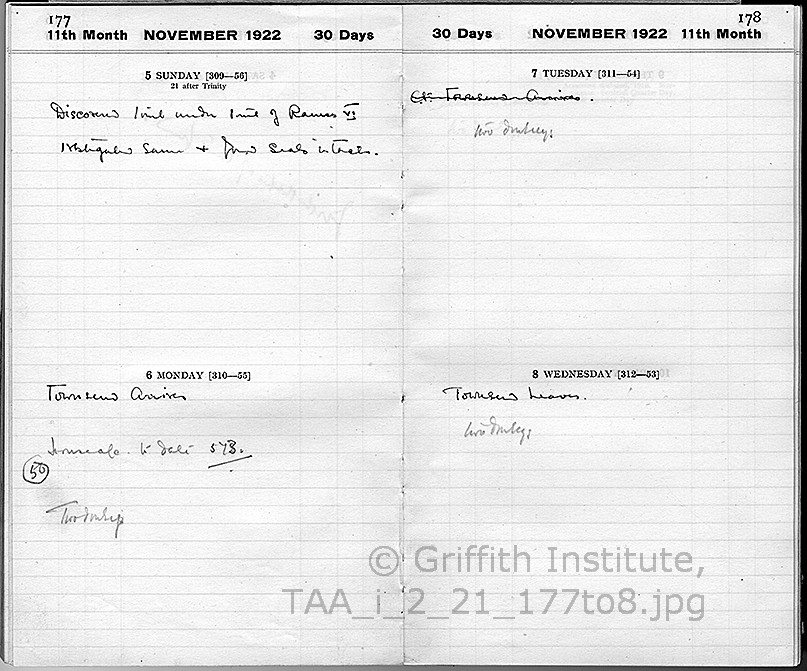 177
11th Month NOVEMBER 1922 30 Days
5 SUNDAY [309—56]
21 after Trinity
Discovered tomb under tomb of Ramses VI
Investigated same & found seals intact.
6 MONDAY [310—55]
Townsend Arrives
House a/c. to date 573.
50
Two donkeys
178
30 Days NOVEMBER 1922 11th Month
7 TUESDAY [311—54]
Townsend Arrives.
two donkeys
8 WEDNESDAY [312—53]
Townsend Leaves.
two donkeys
© Griffith Institute,
TAA_i_2_21_177to8.jpg